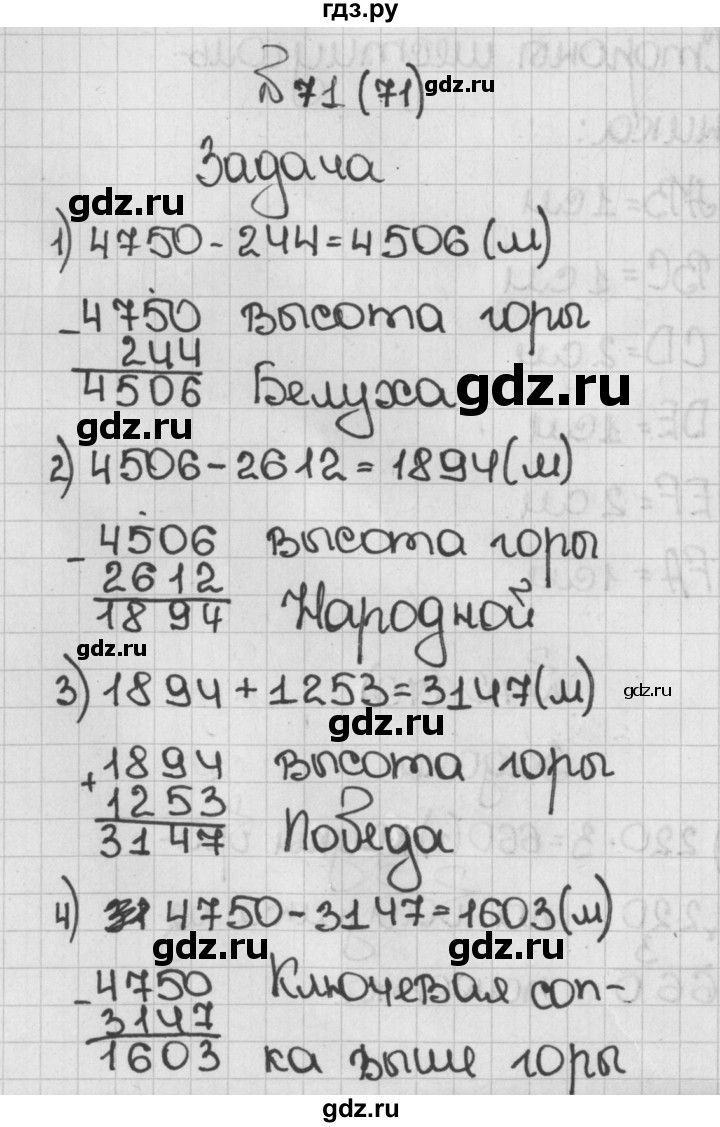 гдз.ру
№ 71 (71)
gdz.ru
Задача
gdz.ru
1) 4750 - 244 = 4506 (м)
- 4750 высота горы
244
4506 Белуха
gdz.ru
gdz.ru
2) 4506 - 2612 = 1894 (м)
- 4506 высота горы
2612
1894 Народной
gdz.ru
3) 1894 + 1253 = 3147 (м)
gdz.ru
gdz.ru
+ 1894 высота горы
1253
3147 Победа
4) 4750 - 3147 = 1603 (м)
gdz.ru gdz.ru
- 4750 Ключевая соп-
3147
1603 ка выше горы
gdz.ru